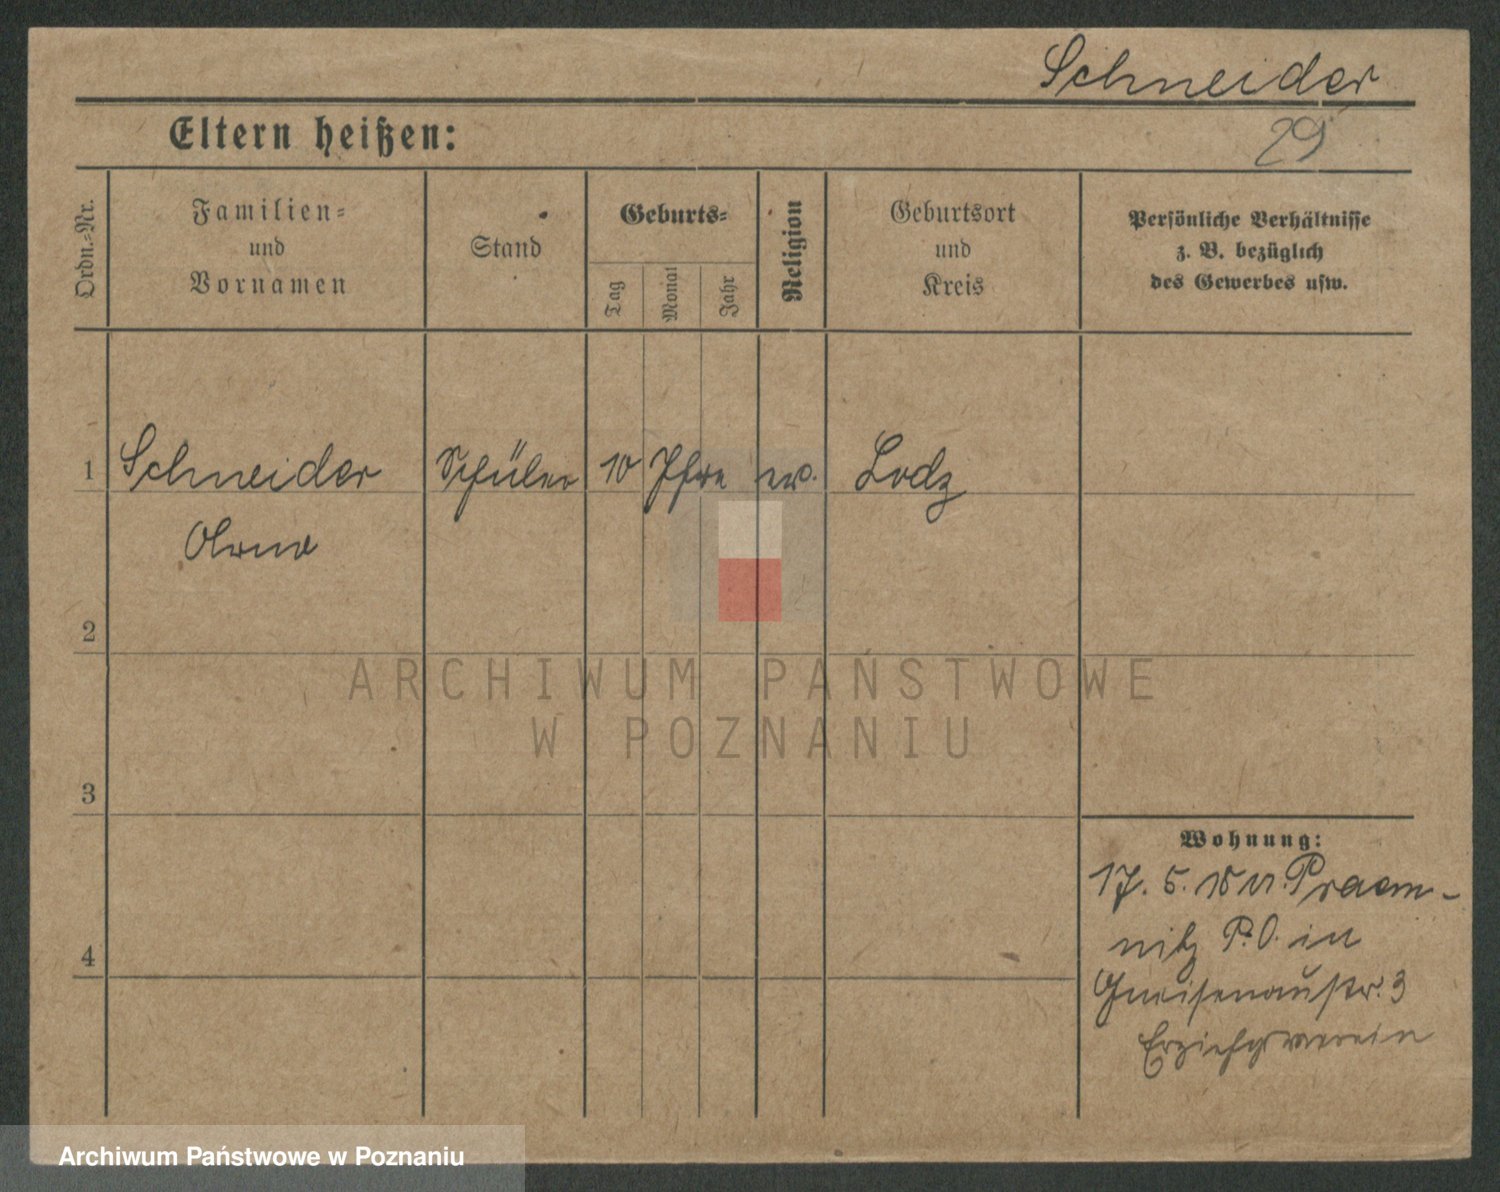 Schneider
Eltern heißen:
29
Ordn.-Nr.
Familien-
und
Vornamen
Stand
Geburts-
Tag
Monat
Jahr
Religion
Geburtsort
und
Kreis
Persönliche Verhältnisse
z. B. bezüglich
des Gewerbes usw.
1 Schneider Schüler 10 Jahre ev. Lodz
2
3
4
Wohnung:
17. 5. 15 v.
nitz P. O. in
Gneisenaustr. 3
Erziehgsverein
ARCHIWUM PAŃSTWOWE
W POZNANIU
Archiwum Państwowe w Poznaniu